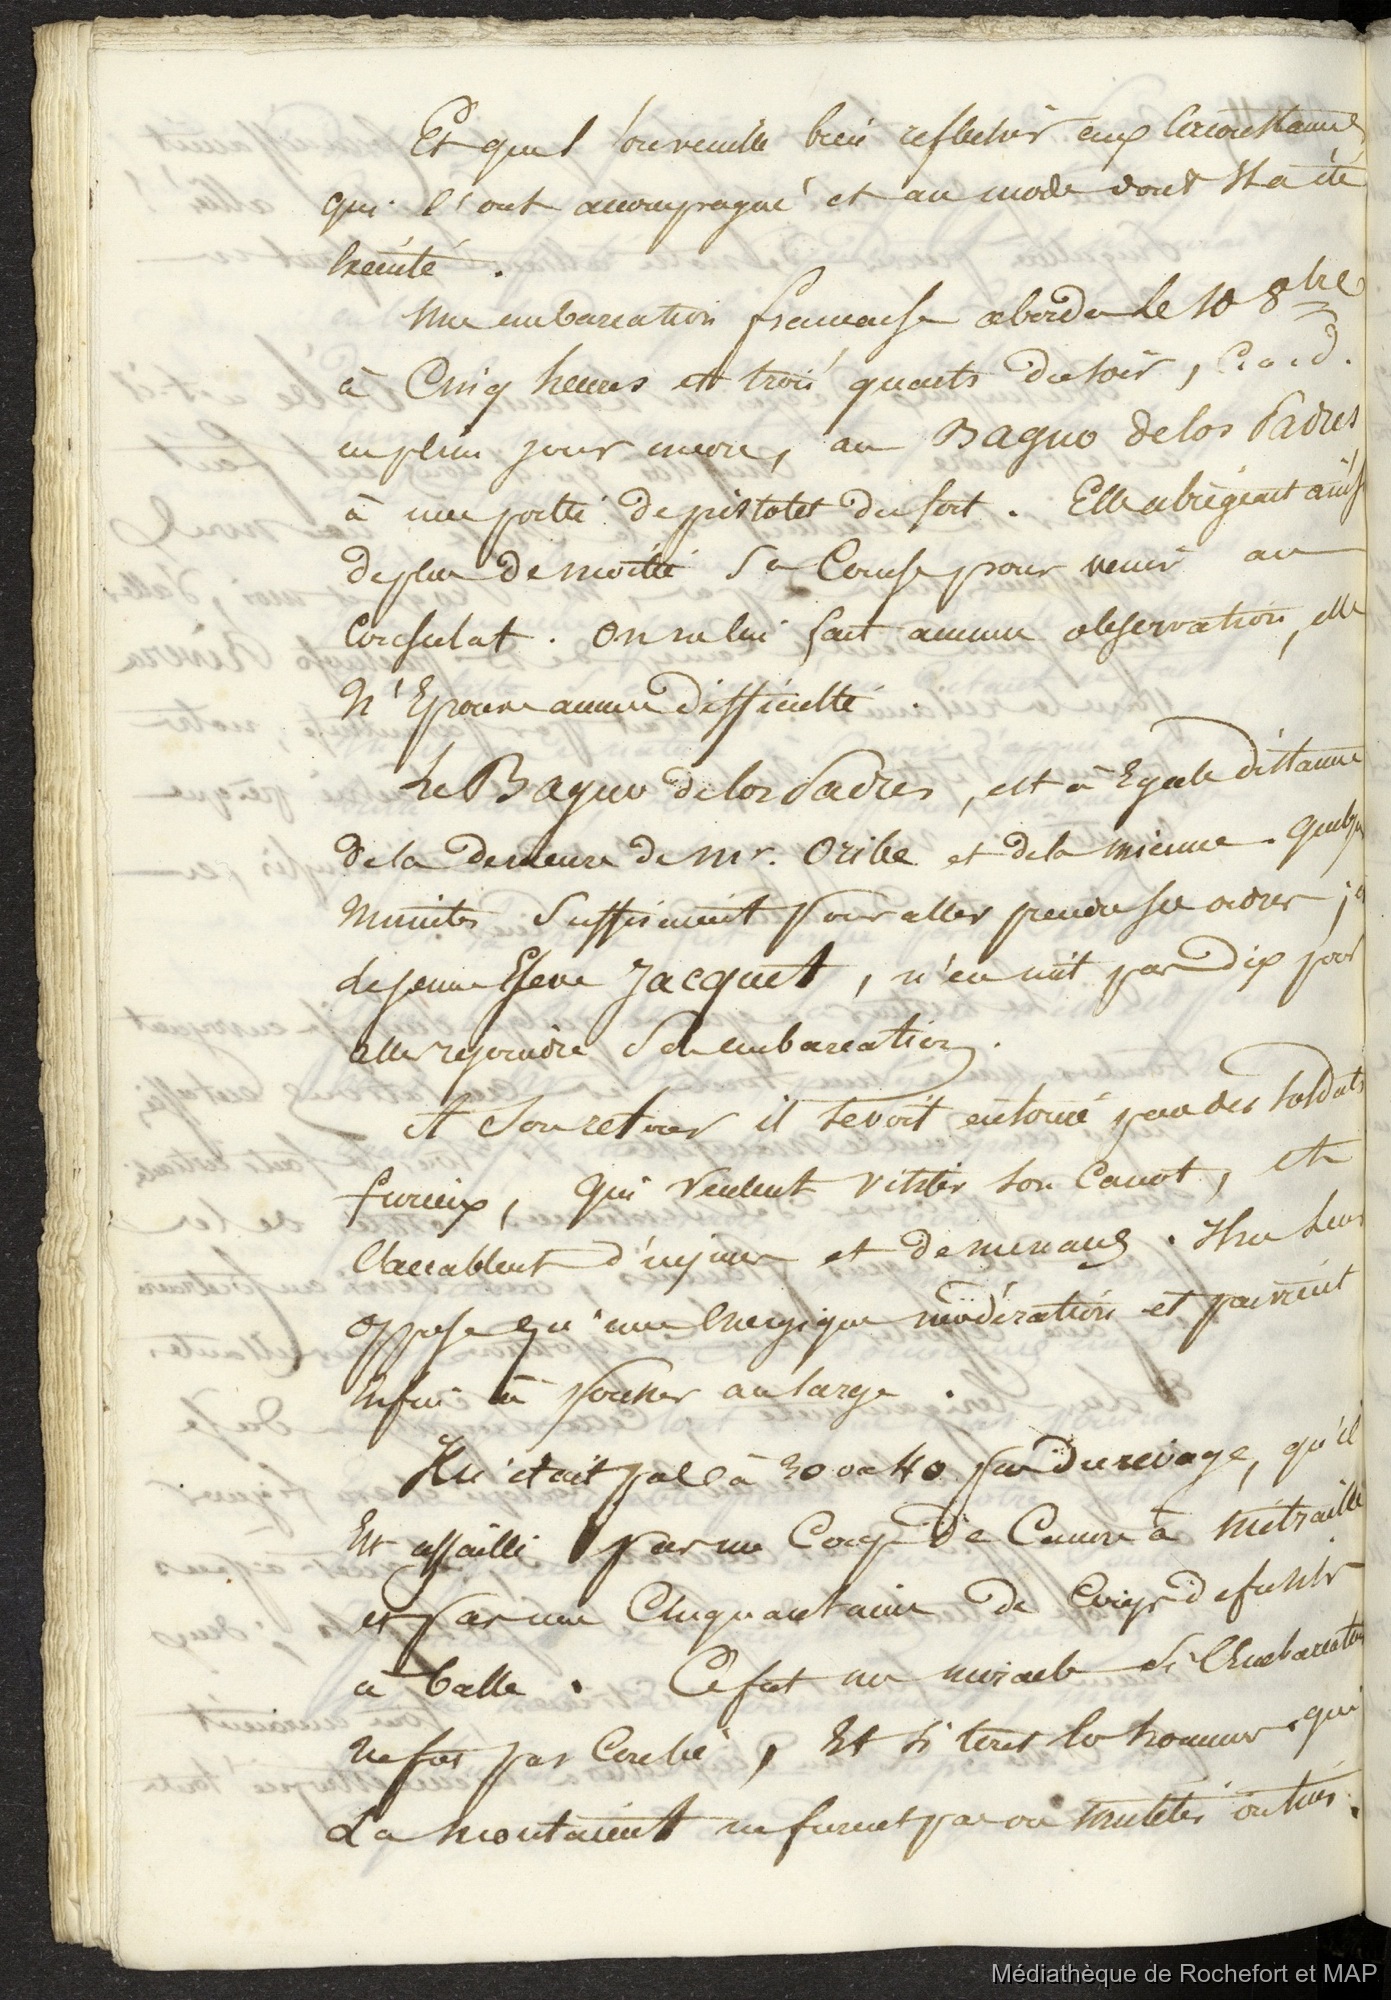 Et que l'on veuille bien reflechir aux Circonstances
qui l'ont accompagné et au mode dont Il a été
Exécuté.
Une embarcation francaise aborda le 10 8bre
à Cinq heures et trois quarts du soir, C. a. d.
en plein jour encore, au Bagno de los Padres
à une portée de pistolet du fort. Elle abrégeait ainsi
de plus de moitié Sa Course pour venir au
Consulat. On ne lui fait aucune observation, elle
N'Eprouve aucune difficulté.
Le Bagno de los Padres, est à Egale distance
de la demeure de Mr. Oribe et de la mienne. quelques
Minutes Suffisaient pour aller prendre ses ordres;
le jeune Elève Jacquet, n'en mit pas dix pour
aller rejoindre Son embarcation.
A Son retour il se voit entouré par des soldats
furieux, qui veulent visiter son Canot, et
L'accablent d'injures et de menaces. Il ne leur
oppose qu'une Energique modération et parvient
Enfin à pousser au large.
Il n'était pas à 30 ou 40 pas du rivage, qu'il
Est assailli par un Coup de Canon à Mitraille
et par une Cinquantaine de Coups de fusils
à balle. Ce fut un miracle Si l'Embarcation
ne fut pas Coulée, Et si tous les hommes qui
La Montaient ne furent pas ou mutilés ou tués.
Médiathèque de Rochefort et MAP